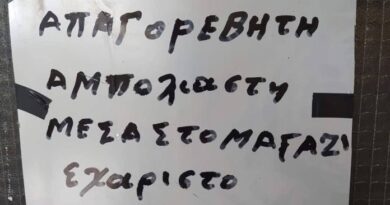 ΑΠΑΓΟΡΕΒΗΤΗ
ΑΜΠολιαστη
ΜΕΣΑΣΤΟΜΑΓΑΖΙ
εχαριστο